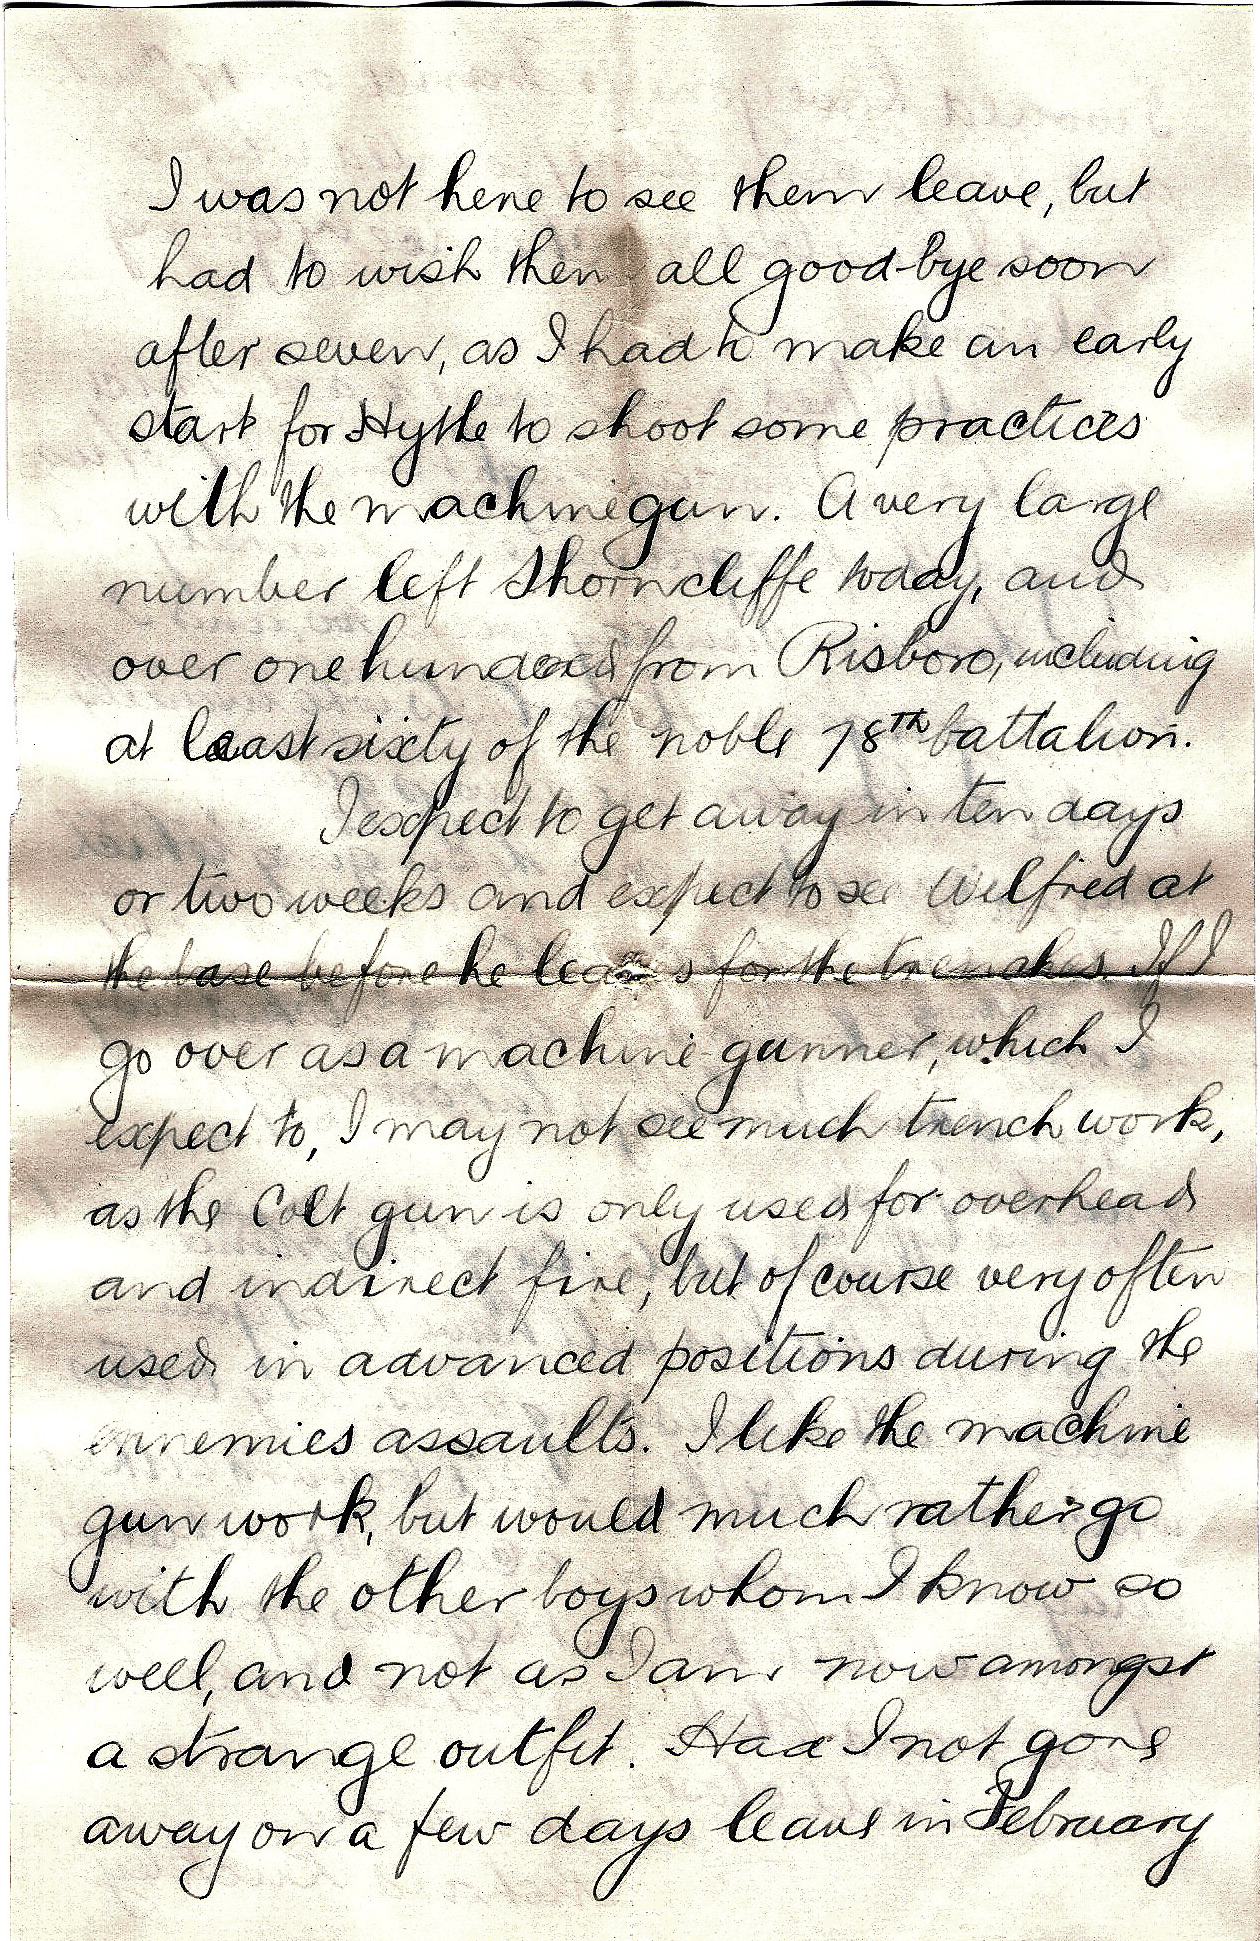 I was not here to see them leave, but
had to wish them all good-bye soon
after seven, as I had to make an early
start for Hythe to shoot some practices
with the machine gun. A very large
number left Shorncliffe today, and
over one hundred from Risboro, including
at least sixty of the noble 78th battalion.
I expect to get away in ten days
or two weeks and expect to see Wilfred at
the base before he leaves for the trenches. If I
go over as a machine-gunner, which I
expect to, I may not see much trench work,
as the Colt gun is only used for overhead
and indirect fire, but of course very often
used in advanced positions during the
ennemies assaults. I like the machine
gun work, but would much rather go
with the other boys whom I know so
well, and not as I am now amongst
a strange outfit. Had I not gone
away on a few days leave in February